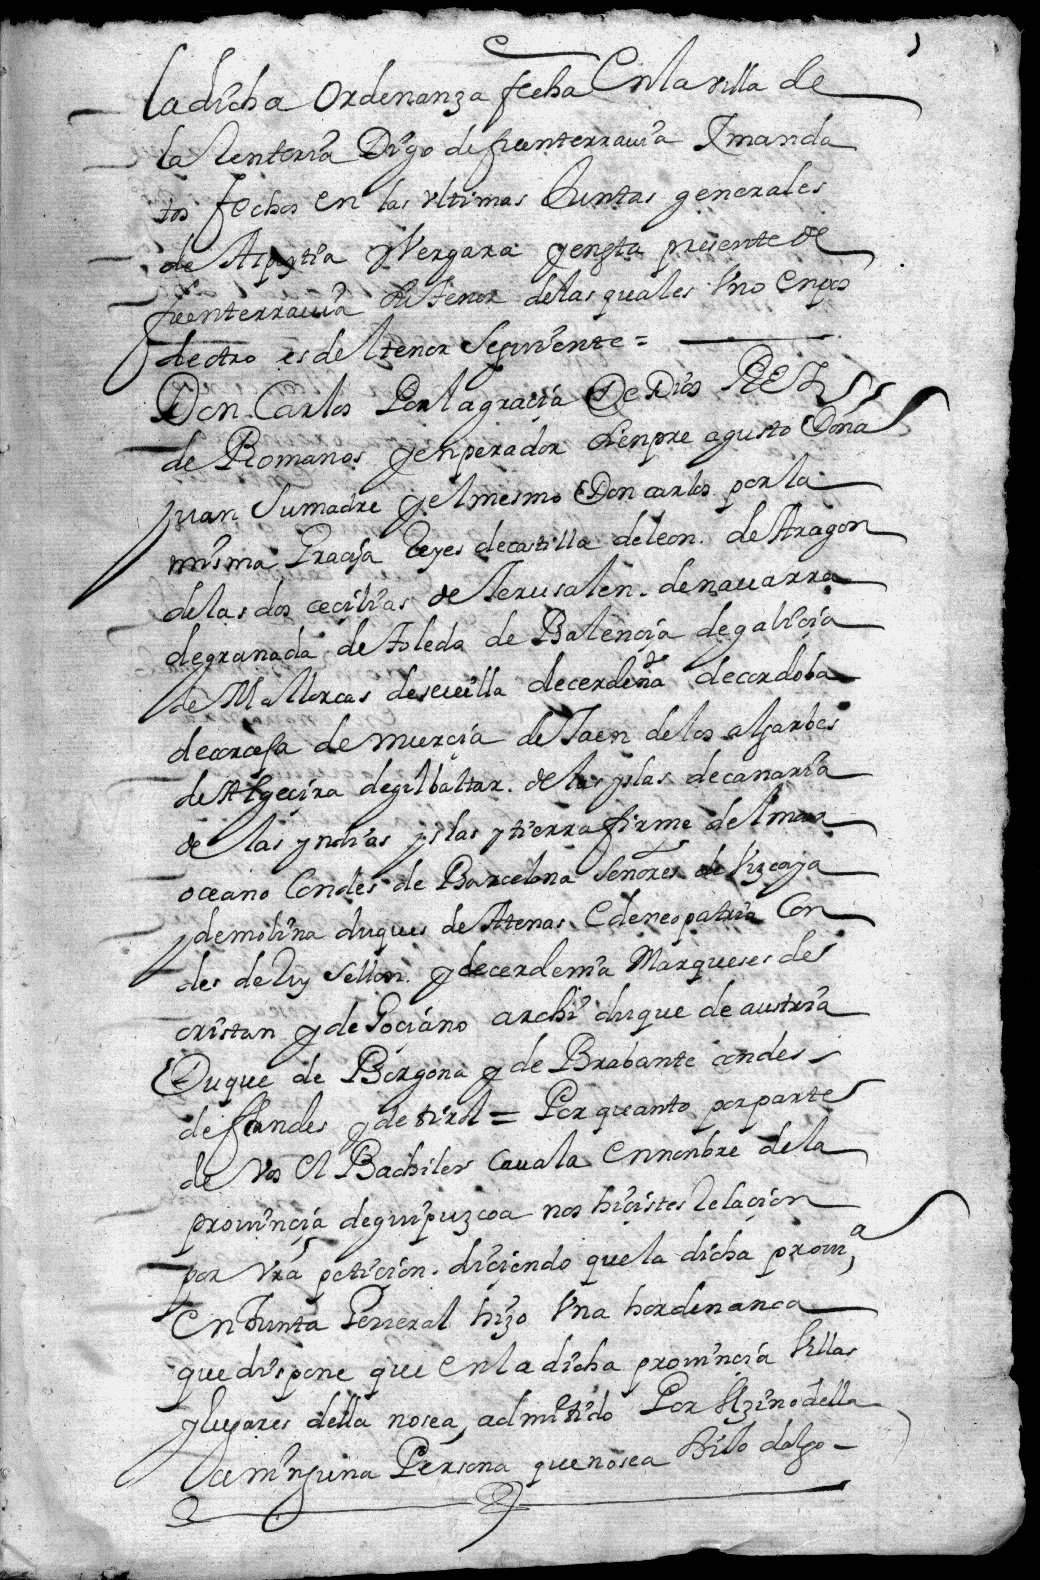 la dicha ordenanza fecha En la villa de
la Renteria Digo de fuenterrauia Y manda
tos fechos en las vltimas Juntas generales
de Azpeytia y Vergara y en esta presente de
fuenterrauia el tenor de las quales Vno en pos
de otro es del tenor Siguiente =
Don Carlos Por la gracia De Dios REY
de Romanos y enperador sienpre agusto Doña
Juana Su madre y el mesmo Don carlos por la
misma Gracia Reyes de castilla de leon de Aragon
de las dos cecilias de Jerusalen de nauarra
de granada de toledo de Balencia de galicia
de Mallorcas de seuilla de cerdeña de cordoba
de corcega de murcia de Jaen de los algarbes
de Algecira de gilbaltar de las yslas de canaria
de las yndias yslas y tierra firme del mar
oceano Condes de Barcelona Señores de Vizcaya
y de molina duques de Atenas E de neopatria Con
des de Ruy Sellon y de cerdenia Marqueses de
oristan y de Gociano archi duque de austria
Duque de Borgona y de Brabante condes
de flandes y de tirol = Por quanto por parte
de Vos el Bachiler cauala En nonbre de la
prouincia de guipuzcoa nos hicistes Relacion
por Vra peticion diciendo que la dicha prouia
En Junta General hizo Vna hordenanca
que dispone que En la dicha prouincia Villas
y lugares della no sea admitido Por Vzino della
a ninguna Persona que no sea Hijo dalgo